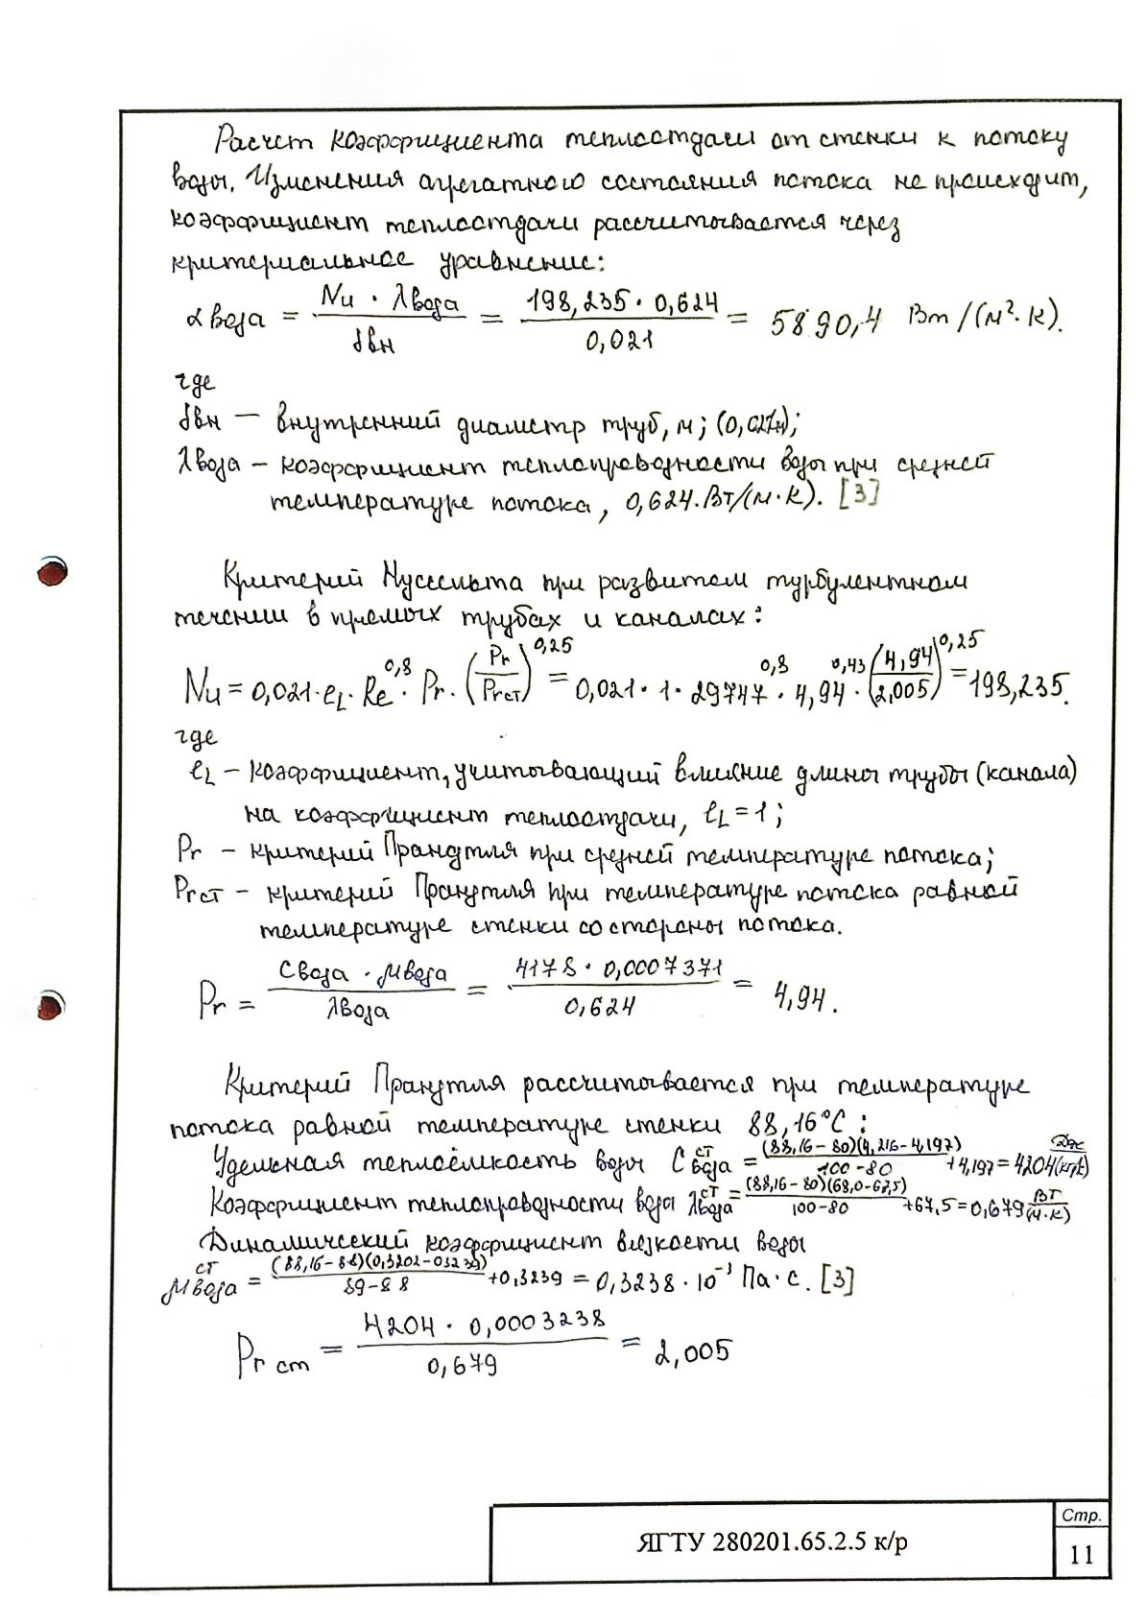 Расчет коэффициента теплоотдачи от стенки к потоку
воды. Изменения агрегатного состояния потока не происходит,
коэффициент теплоотдачи рассчитывается через
критериальное уравнение:
αвода = (Nu · λвода) / dвн = (198,235 · 0,624) / 0,021 = 5890,4 Вт/(м²·К).
где
dвн — внутренний диаметр труб, м; (0,021м);
λвода – коэффициент теплопроводности воды при средней
температуре потока, 0,624.Вт/(м·К). [3]
Критерий Нуссельта при развитом турбулентном
течении в прямых трубах и каналах:
Nu = 0,021·eL·Re^0,8·Pr·(Pr/Prст)^0,25 = 0,021·1·29747^0,8·4,94^0,43·(4,94/2,005)^0,25 = 198,235.
где
eL – коэффициент, учитывающий влияние длины трубы (канала)
на коэффициент теплоотдачи, eL=1;
Pr – критерий Прандтля при средней температуре потока;
Prст – критерий Прандтля при температуре потока равной
температуре стенки со стороны потока.
Pr = (Cвода · μвода) / λвода = (4178 · 0,0007371) / 0,624 = 4,94.
Критерий Прандтля рассчитывается при температуре
потока равной температуре стенки 88,16°C:
Удельная теплоёмкость воды Cвода^ст = (88,16–80)(4,216–4,197) / (100–80) + 4,197 = 4204 Дж/(кг·К)
Коэффициент теплопроводности воды λвода^ст = (88,16–80)(68,0–67,5) / (100–80) + 67,5 = 0,679 Вт/(м·К)
Динамический коэффициент вязкости воды
μвода^ст = (88,16–88)(0,3202–0,3239) / (89–88) + 0,3239 = 0,3238·10⁻³ Па·с. [3]
Pr ст = (4204 · 0,0003238) / 0,679 = 2,005
ЯГТУ 280201.65.2.5 к/р
Стр.
11